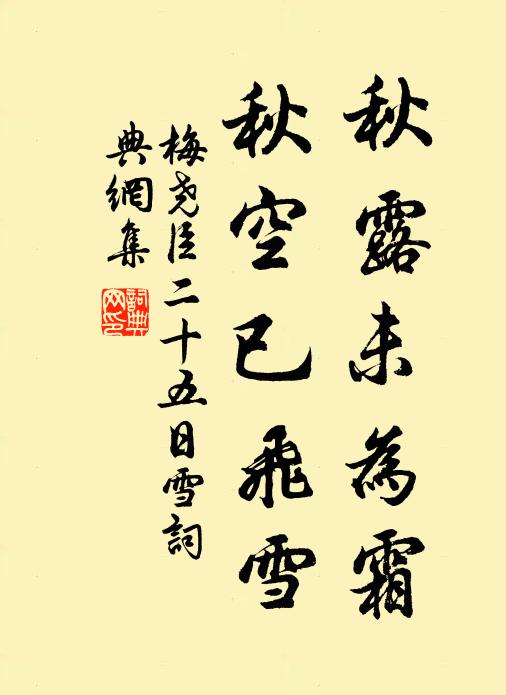 秋露未為霜
秋空已飛雪
梅堯臣二十五日雪詞
典網集
詞典網印